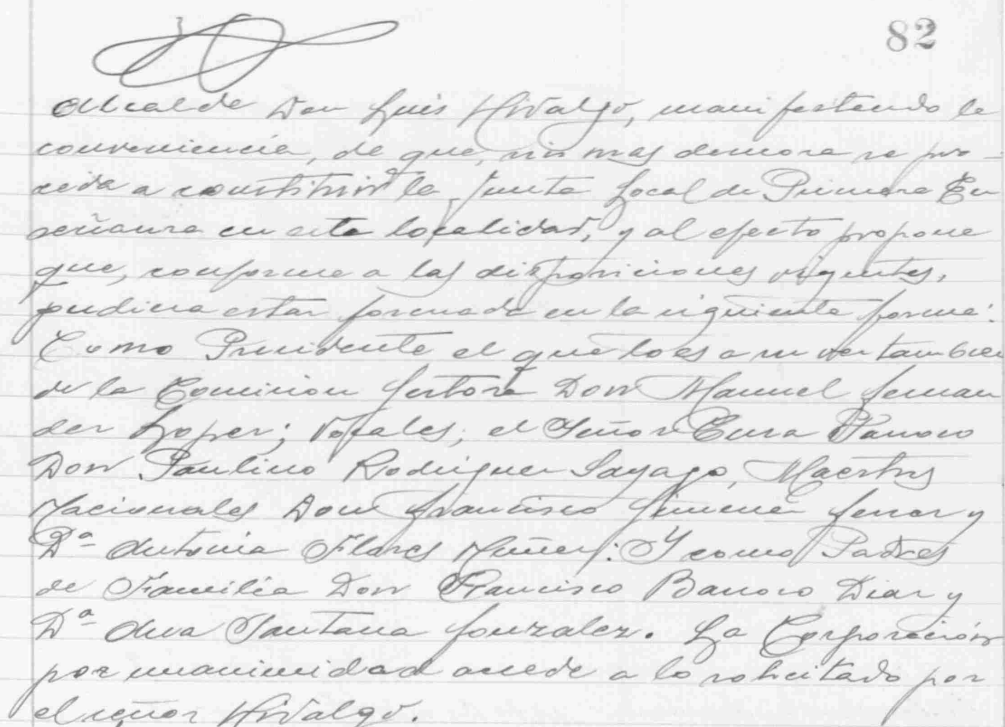 82
Alcalde Don Luis Hidalgo, manifestando la
conveniencia, de que, sin mas demora se pro-
ceda a constituir la Junta Local de Primera En
señanza en esta localidad, y al efecto propone
que, conforme a las disposiciones vigentes,
pudiera estar formada en la siguiente forma:
Como Presidente el que lo es a su vez tambien
de la Comision Gestora Don Manuel Fernan
dez Lopez; Vocales, el Señor Cura Parroco
Don Paulino Rodriguez Sayago, Maestros
Nacionales Don Francisco Jimenez y
Dª Antonia Flores Nuñez: Y como Padres
de Familia Don Francisco Barroso Diaz y
Dª Ana Santana Gonzalez. La Corporación
por unanimidad accede a lo solicitado por
el señor Hidalgo.